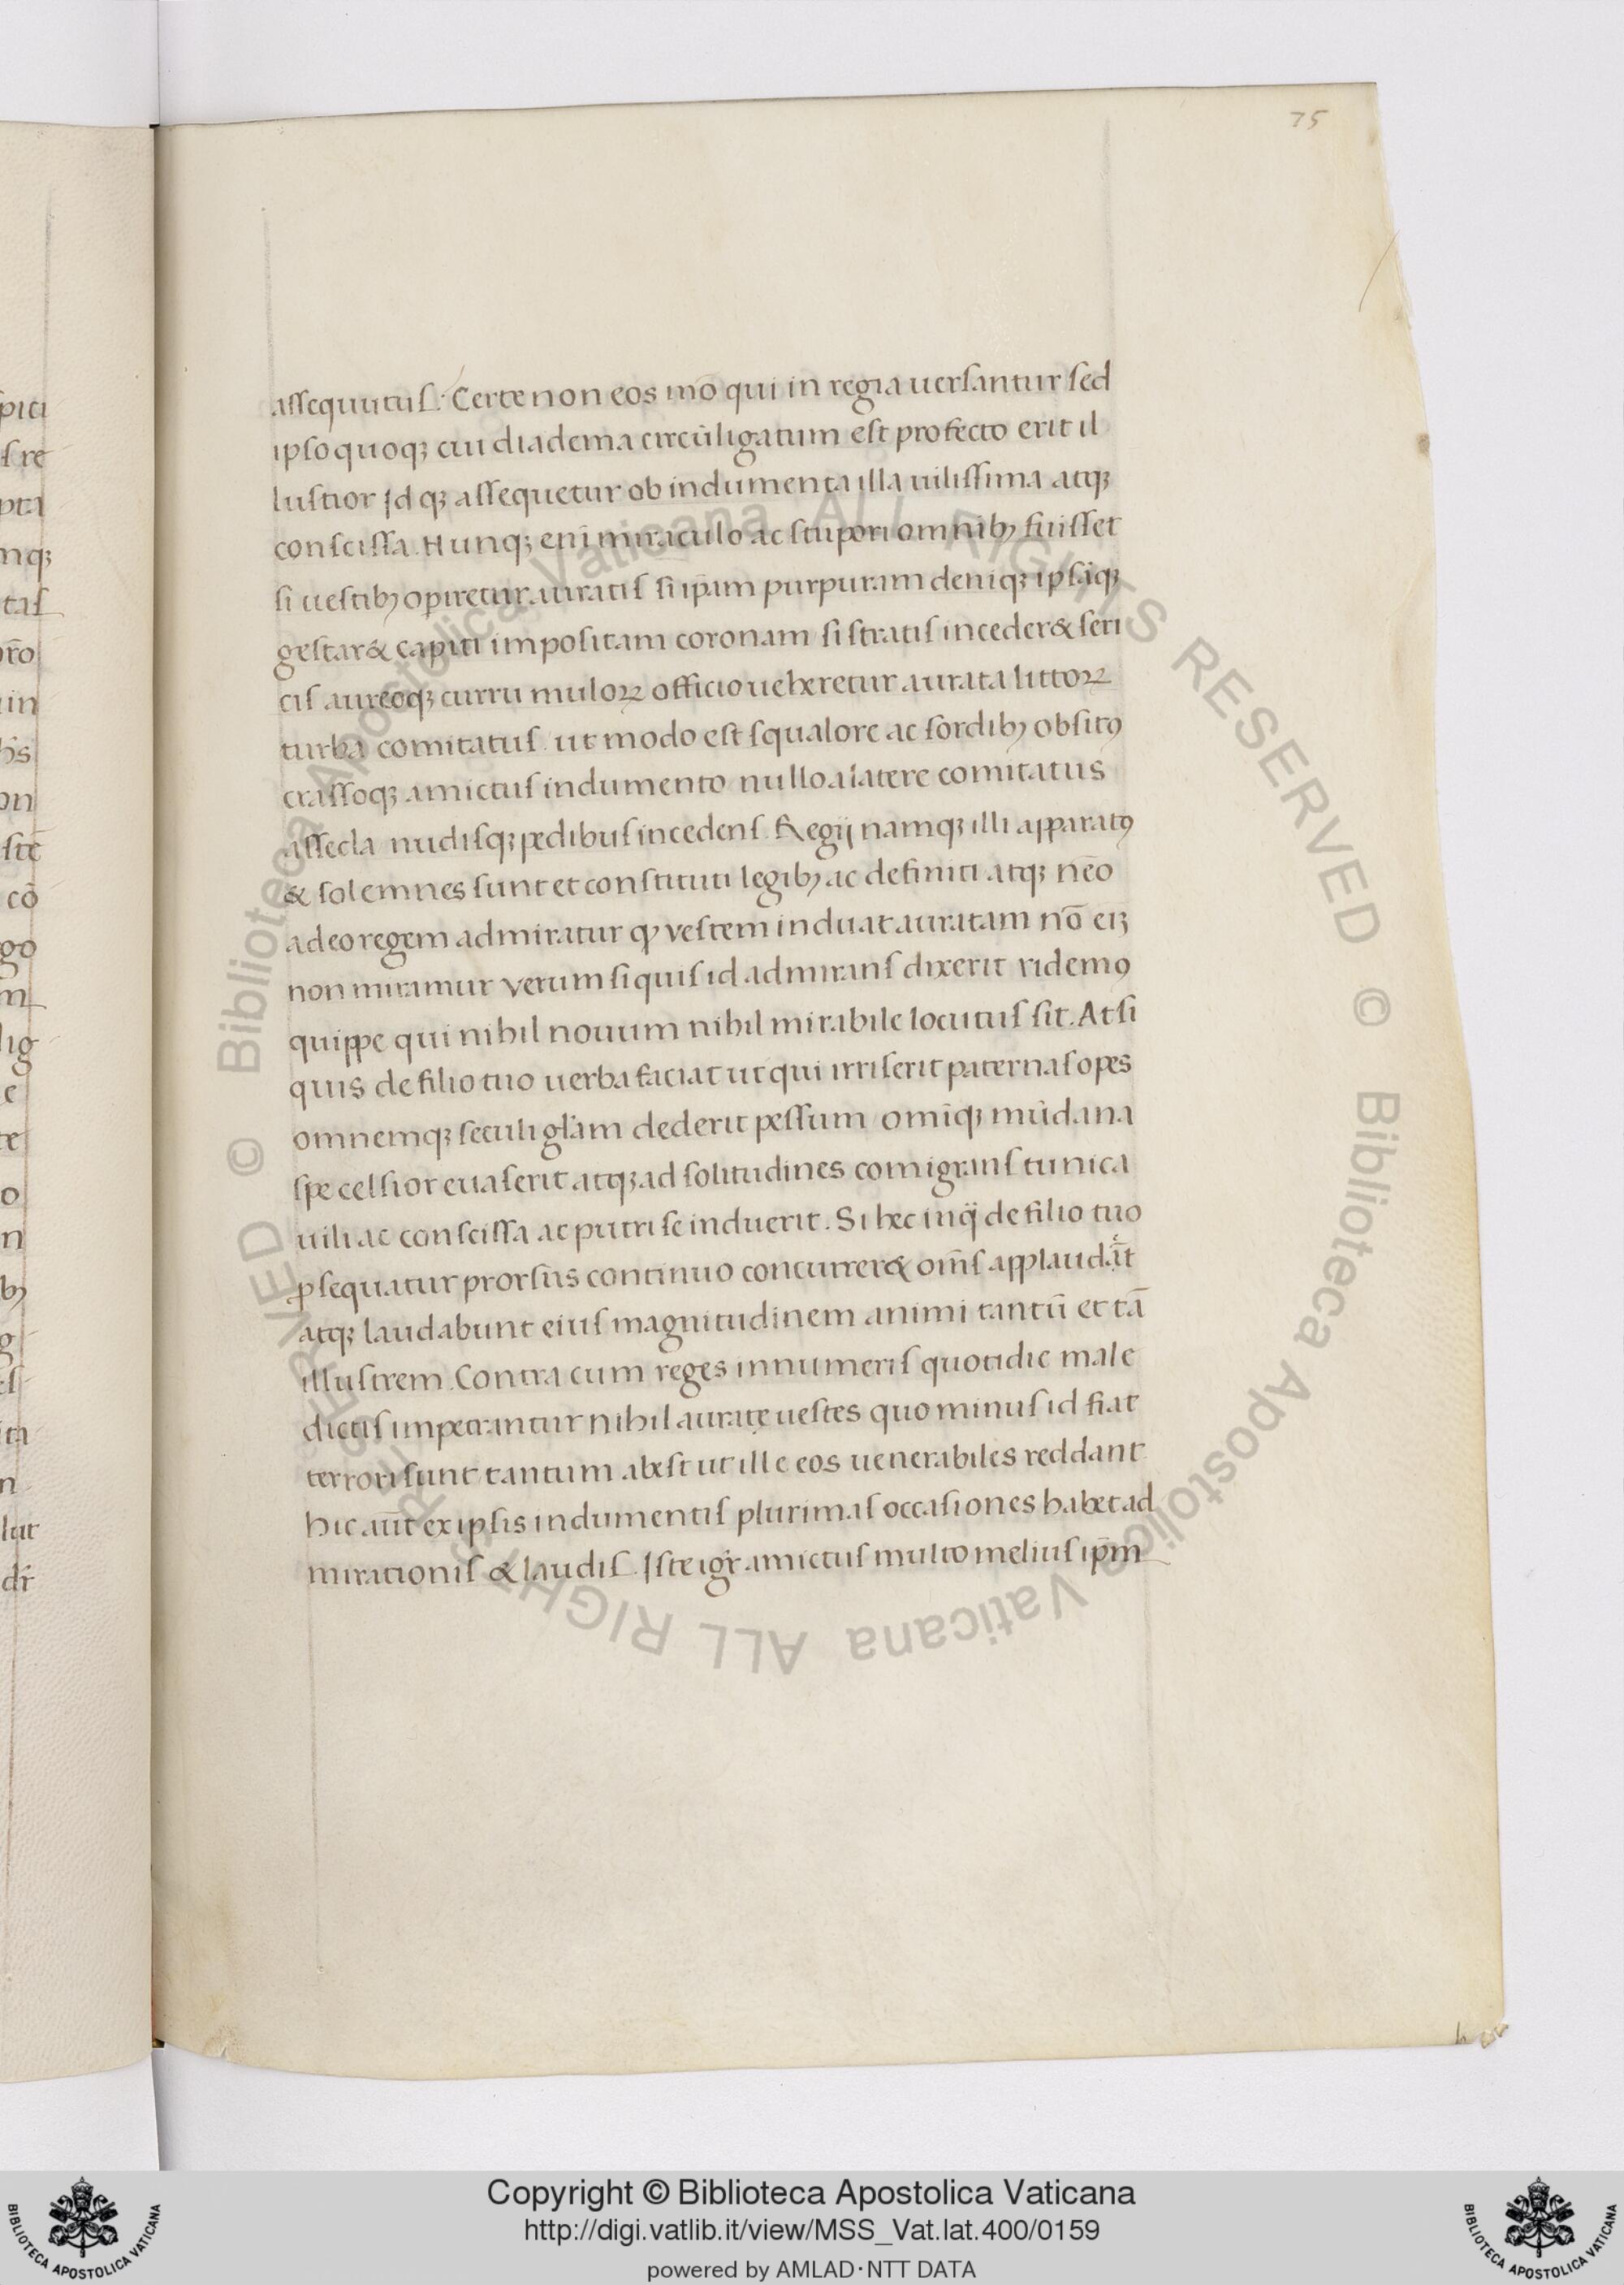 75
assequutus. Certe non eos mō qui in regia uersantur sed
ipso quoqꝫ cui diadema circūligatum est profecto erit il
lustior Id qꝫ assequetur ob indumenta illa uilissima atqꝫ
conscissa. Hunqꝫ eni miraculo ac stupori omnibꝫ fuisset
si uestibꝫ opiretur auratis si ip̄am purpuram deniqꝫ ipsāqꝫ
gestar& capiti impositam coronam si stratis inceder& seri
cis aureoqꝫ curru muloꝝ officio ueheretur aurata littoꝝ
turba comitatus. ut modo est squalore ac sordibꝫ obsitꝯ
crassoqꝫ amictus indumento nullo a latere comitatus
assecla nudisqꝫ pedibus incedens. Regij namqꝫ illi apparatꝯ
& solemnes sunt et constituti legibꝫ ac definiti atqꝫ nēo
adeo regem admiratur ꝙ vestem induat auratam nō eiꝫ
non miramur verum siquis id admirans dixerit ridemꝯ
quippe qui nihil nouum nihil mirabile locutus sit. At si
quis de filio tuo uerba faciat ut qui irriserit paternas opes
omnemqꝫ seculi gl̄am dederit pessum omīqꝫ mūdana
spe celsior euaserit atqꝫ ad solitudines comigrans tunica
uili ac conscissa ac putri se induerit. Si hec inq̈ de filio tuo
ꝓsequatur prorsus continuo concurrer& om̄s applaudāt
atqꝫ laudabunt eius magnitudinem animi tantū et tā
illustrem. Contra cum reges innumeris quotidie male
dictis impetrantur nihil auratę uestes quo minus id fiat
terrori sunt tantum abest ut ille eos uenerabiles reddant
hic aūt ex ipsis indumentis plurimas occasiones habet ad
mirationis & laudis. Iste igr̄ amictus multo melius ip̄m
© Biblioteca Apostolica Vaticana ALL RIGHTS RESERVED © Biblioteca Apostolica Vaticana ALL RIGHTS RESERVED
Copyright © Biblioteca Apostolica Vaticana
http://digi.vatlib.it/view/MSS_Vat.lat.400/0159
powered by AMLAD·NTT DATA
BIBLIOTECA APOSTOLICA VATICANA
BIBLIOTECA APOSTOLICA VATICANA